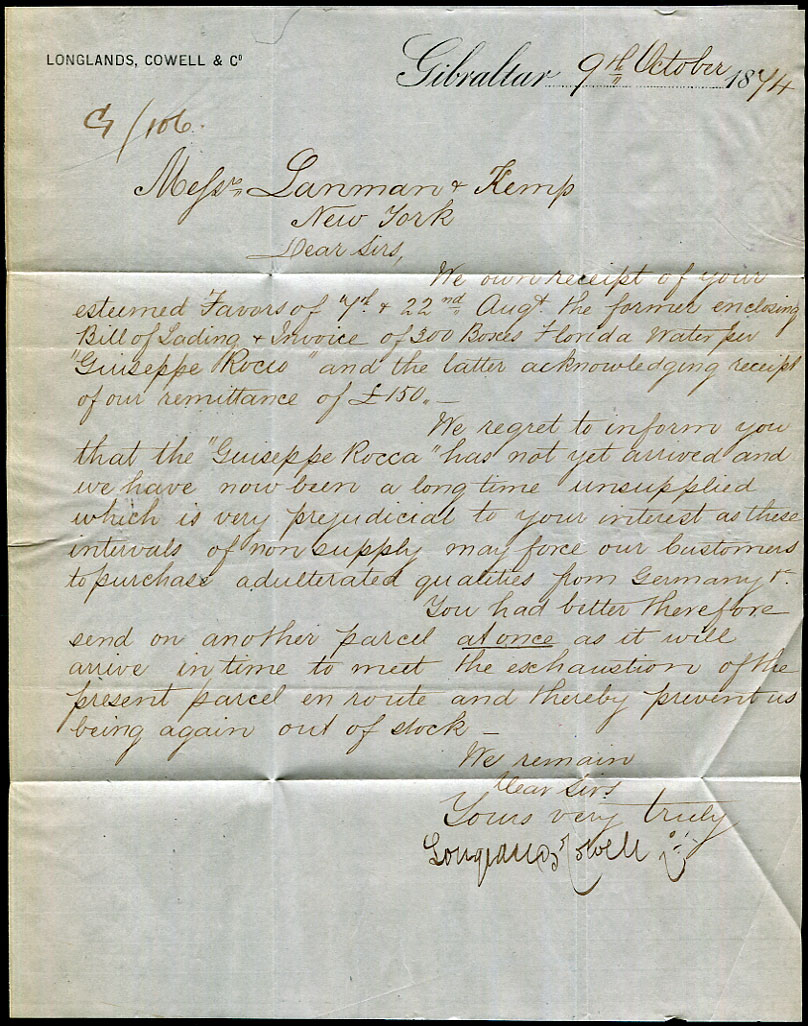 LONGLANDS, COWELL & Cº
Gibraltar 9th October 1874
G/106.
Messrs Lanman & Kemp
New York
Dear Sirs,
We own receipt of your
esteemed Favors of 7th & 22nd Augt. the former enclosing
Bill of Lading & Invoice of 300 Boxes Florida Water per
"Guiseppe Rocco" and the latter acknowledging receipt
of our remittance of £150.—
We regret to inform you
that the "Guiseppe Rocca" has not yet arrived and
we have now been a long time unsupplied
which is very prejudicial to your interest as these
intervals of non supply may force our Customers
to purchase adulterated qualities from Germany &.
You had better therefore
send on another parcel at once as it will
arrive in time to meet the exhaustion of the
present parcel en route and thereby prevent us
being again out of stock —
We remain
Dear Sirs
Yours very truly
Longlands Cowell